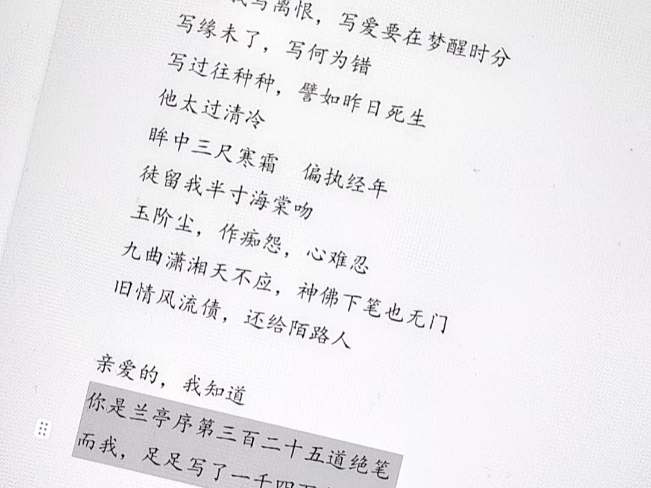 写离恨，写爱要在梦醒时分
写缘未了，写何为错
写过往种种，譬如昨日死生
他太过清冷
眸中三尺寒霜 偏执经年
徒留我半寸海棠吻
玉阶尘，作痴怨，心难忍
九曲潇湘天不应，神佛下笔也无门
旧情风流债，还给陌路人
亲爱的，我知道
你是兰亭序第三百二十五道绝笔
而我，足足写了一千四百